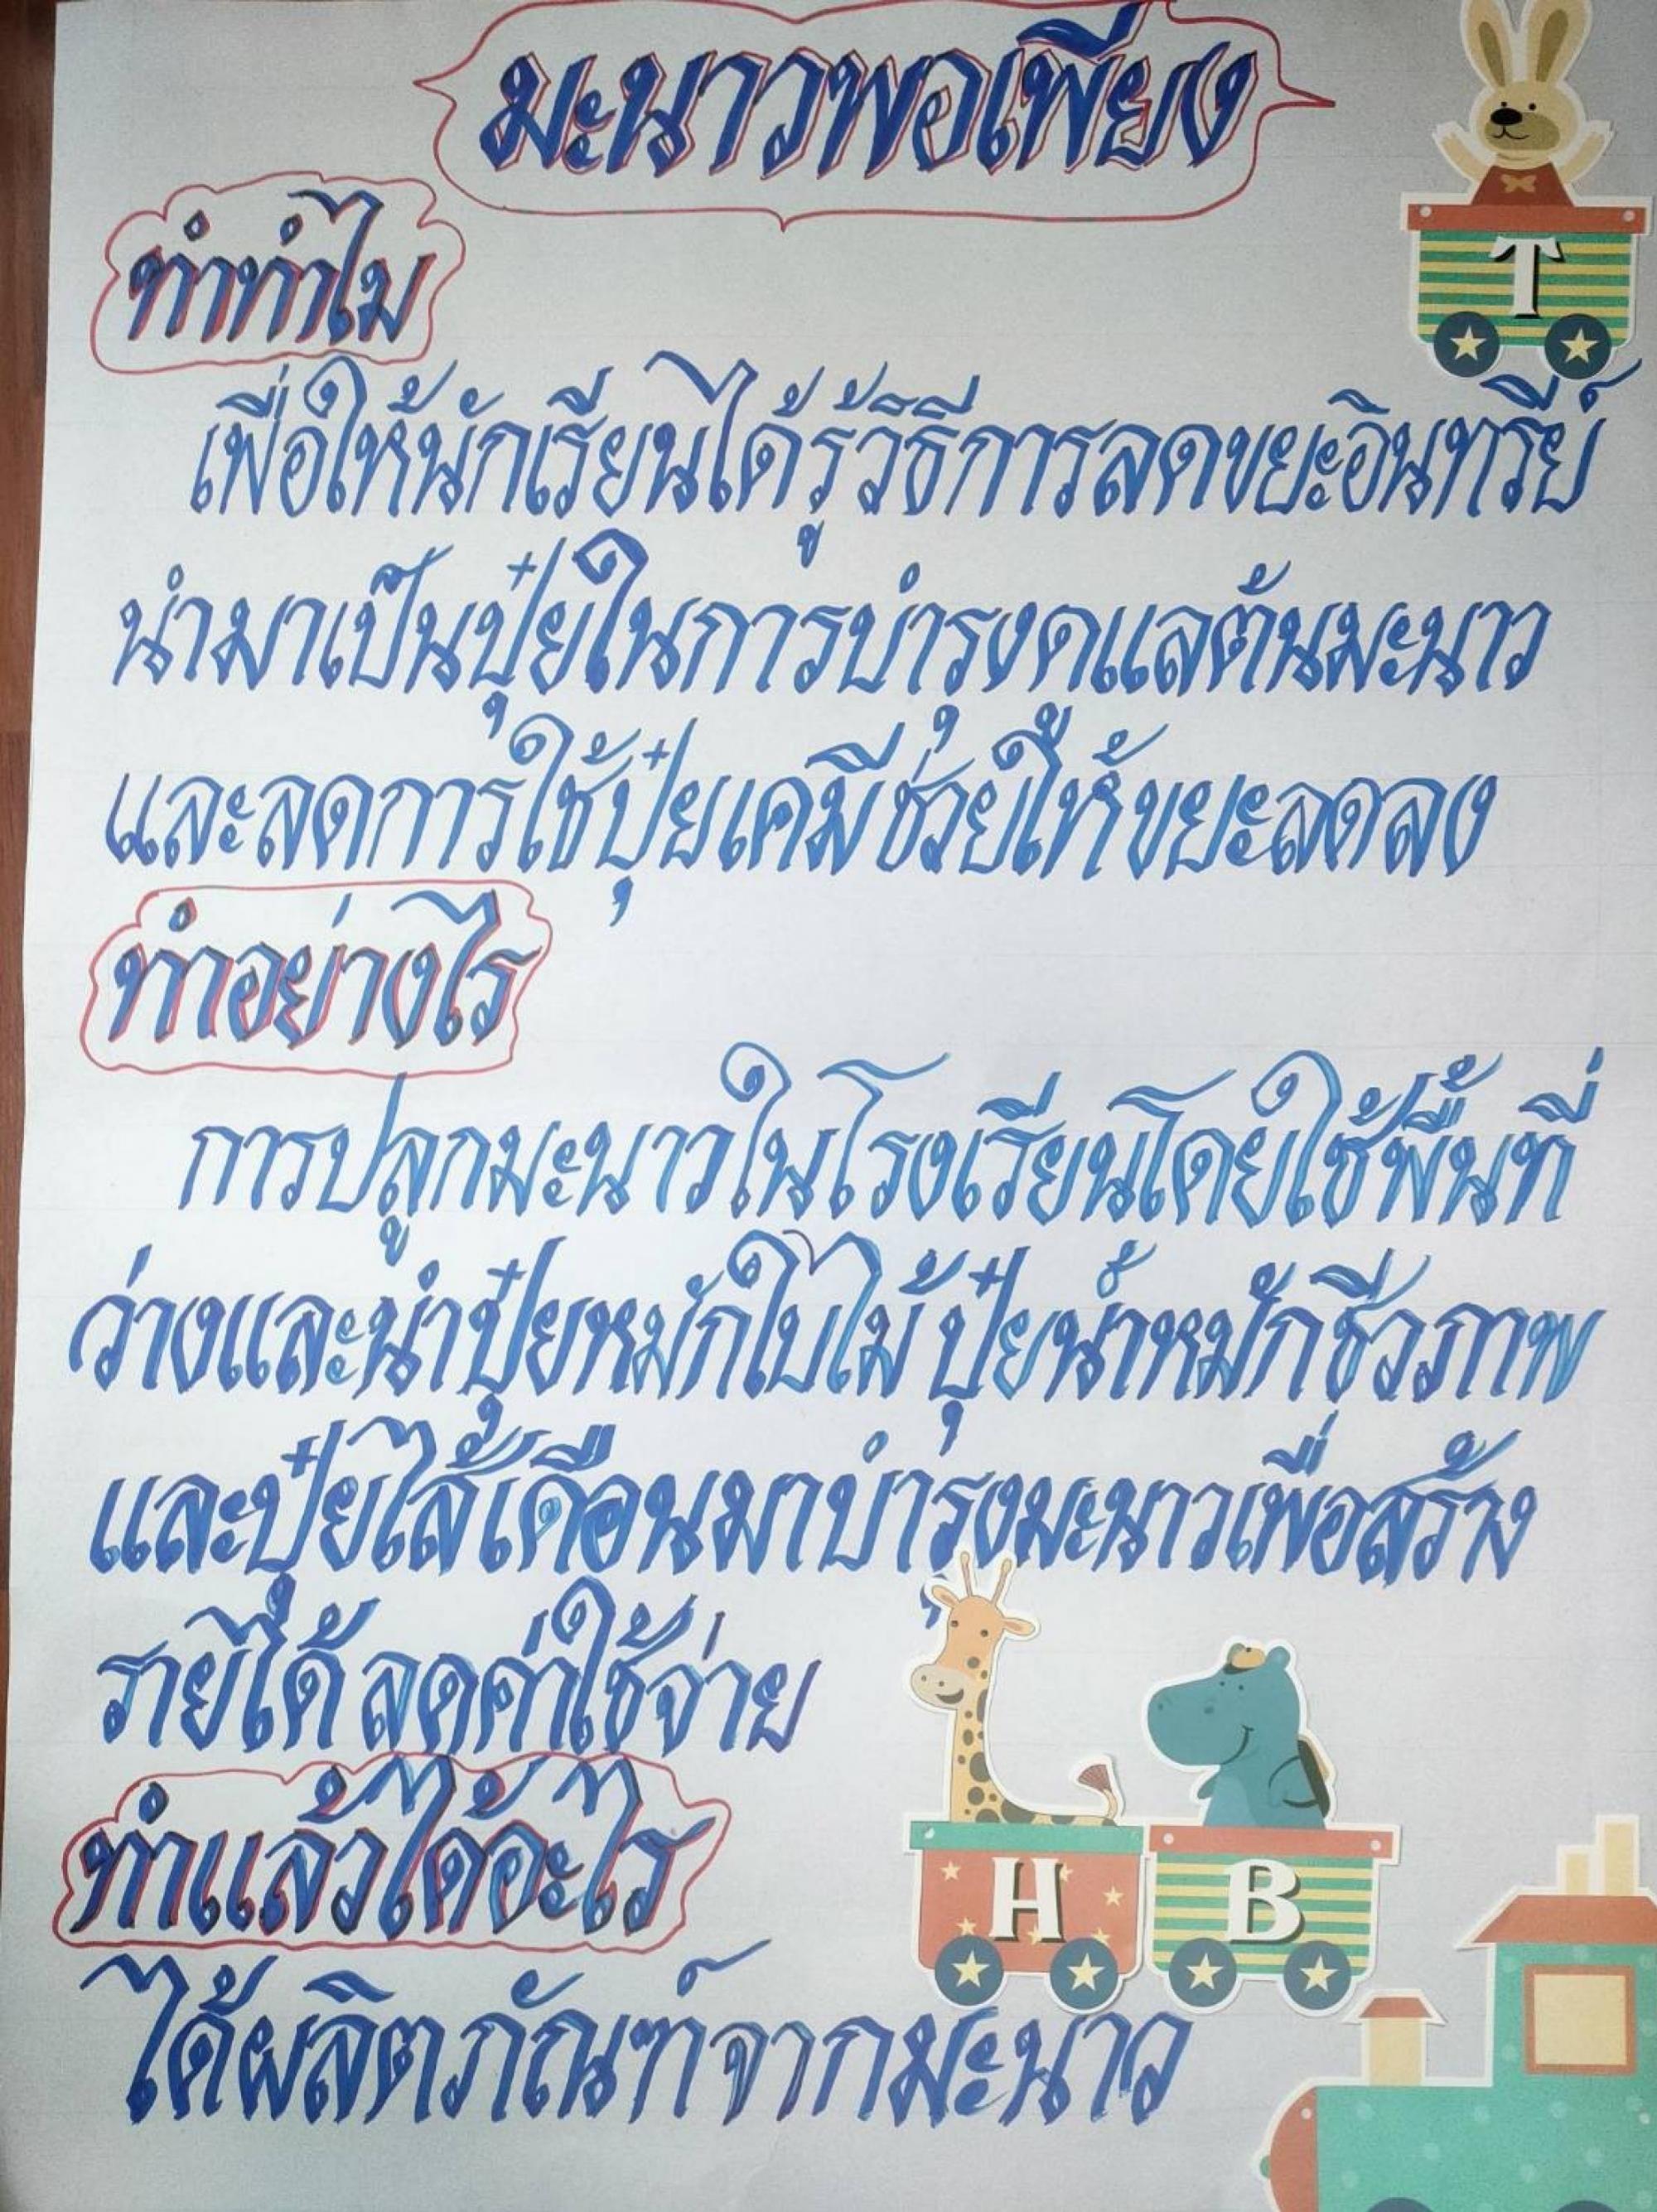 มะนาวพอเพียง
T
ทำทำไม
เพื่อให้นักเรียนได้รู้วิธีการลดขยะอินทรีย์
นำมาเป็นปุ๋ยในการบำรุงดแลต้นมะนาว
และลดการใช้ปุ๋ยเคมีช่วยให้ขยะลดลง
ทำอย่างไร
การปลูกมะนาวในโรงเรียนโดยใช้พื้นที่
ว่างและนำปุ๋ยหมักใบไม้ ปุ๋ยน้ำหมักชีวภาพ
และปุ๋ยไส้เดือนมาบำรุงมะนาวเพื่อสร้าง
รายได้ ลดค่าใช้จ่าย
ทำแล้วได้อะไร
H B
ได้ผลิตภัณฑ์จากมะนาว